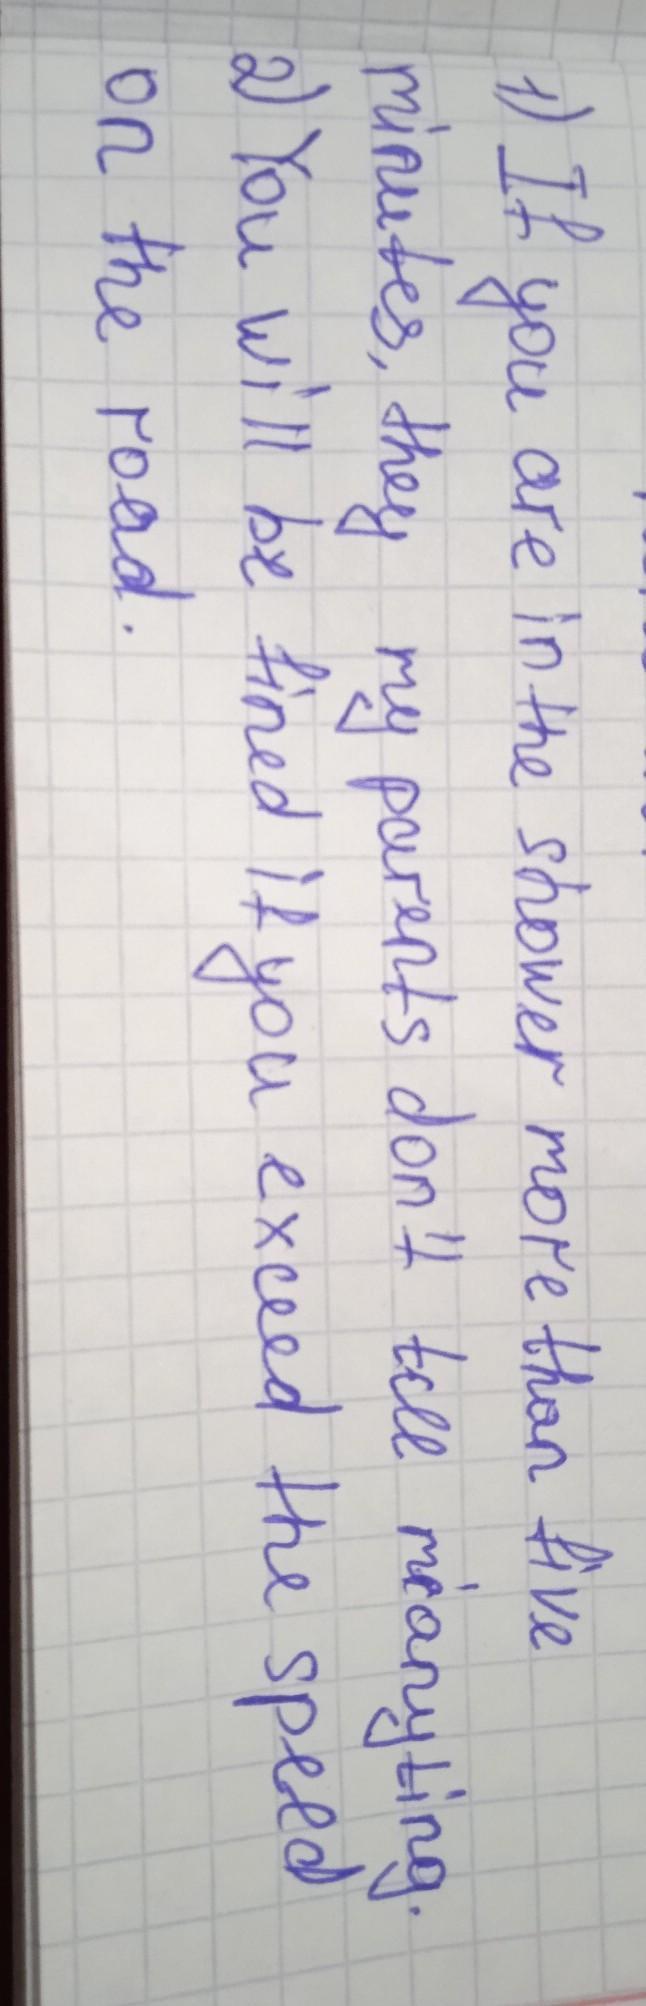 1) If you are in the shower more than five
minutes, they my parents don't tell mianyting.
2) You will be fined if you exceed the speed
on the road.